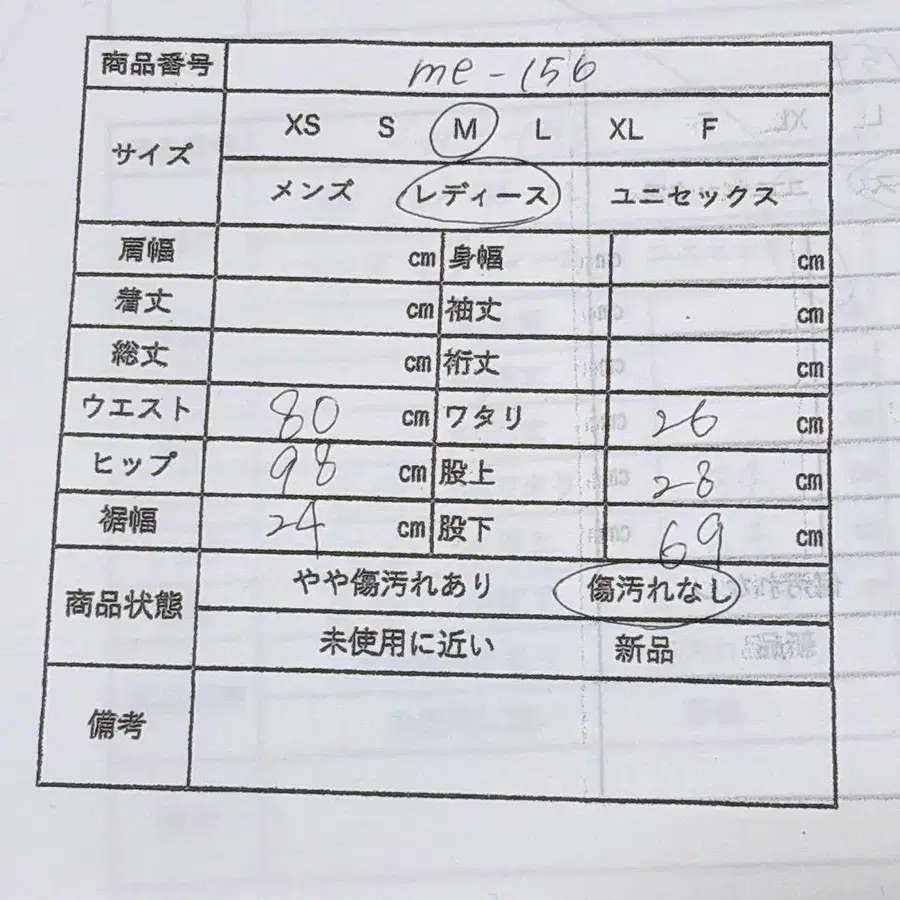 商品番号 me-156
サイズ XS S M L XL F
メンズ レディース ユニセックス
肩幅 cm 身幅 cm
着丈 cm 袖丈 cm
総丈 cm 裄丈 cm
ウエスト 80 cm ワタリ 26 cm
ヒップ 98 cm 股上 28 cm
裾幅 24 cm 股下 69 cm
商品状態 やや傷汚れあり 傷汚れなし
未使用に近い 新品
備考